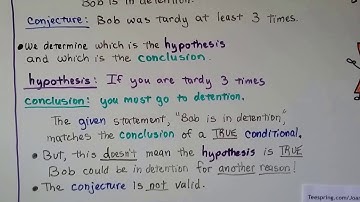 Bob is in detention.
conjecture: Bob was tardy at least 3 times.
• We determine which is the hypothesis
and which is the conclusion.
hypothesis: If you are tardy 3 times
conclusion: you must go to detention.
The given statement, "Bob is in detention,"
matches the conclusion of a TRUE conditional.
• But, this doesn't mean the hypothesis is TRUE
Bob could be in detention for another reason!
• The conjecture is not valid.
Teespring.com/Joa